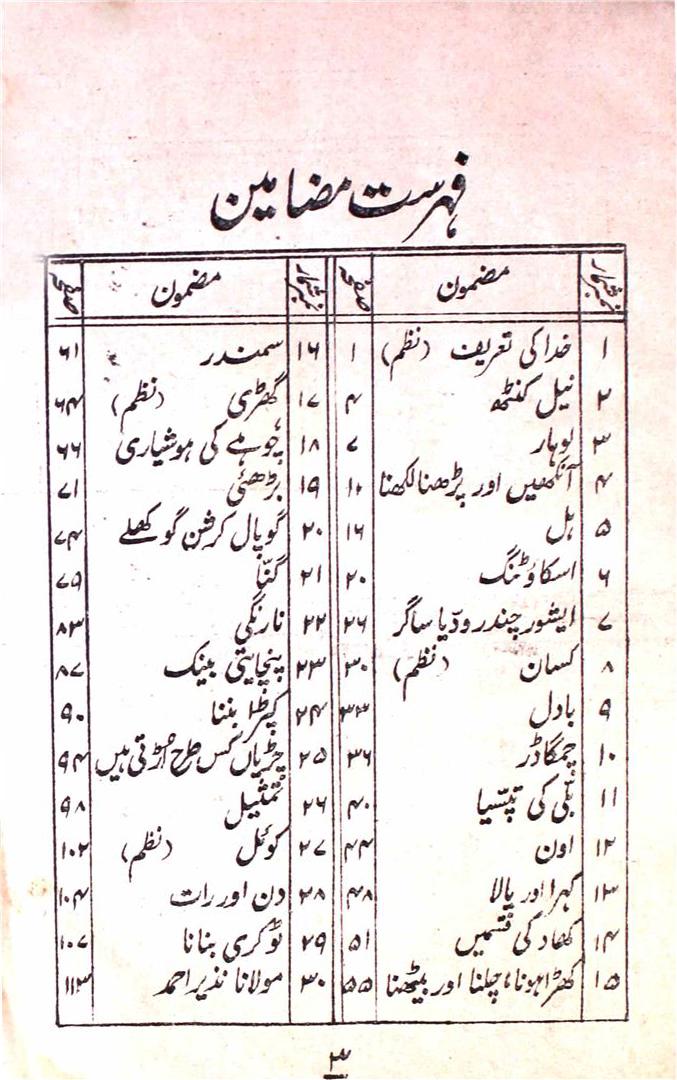 فہرست مضامین
نمبر شمار مضمون صفحہ
۱ خدا کی تعریف (نظم) ۱
۲ نیل کنٹھ ۴
۳ لوہار ۷
۴ آنکھیں اور پڑھنا لکھنا ۱۰
۵ ہل ۱۶
۶ اسکاوٹنگ ۲۰
۷ ایشور چندر ودّیا ساگر ۲۶
۸ کسان (نظم) ۳۰
۹ بادل ۳۳
۱۰ چمگادڑ ۳۶
۱۱ بلّی کی تپسّیا ۴۰
۱۲ اون ۴۴
۱۳ کہرا اور پالا ۴۸
۱۴ کھاد کی قسمیں ۵۱
۱۵ کھڑا ہونا، چلنا اور بیٹھنا ۵۵
نمبر شمار مضمون صفحہ
۱۶ سمندر ۶۱
۱۷ گھڑی (نظم) ۶۴
۱۸ چوہے کی ہوشیاری ۶۶
۱۹ بڑھئی ۷۱
۲۰ گوپال کرشن گوکھلے ۷۴
۲۱ گنّا ۷۹
۲۲ نارنگی ۸۳
۲۳ پنچایتی بینک ۸۷
۲۴ کپڑا بننا ۹۰
۲۵ چڑیاں کس طرح اُڑتی ہیں ۹۴
۲۶ تمثیل ۹۸
۲۷ کوئل (نظم) ۱۰۲
۲۸ دن اور رات ۱۰۴
۲۹ ٹوکری بنانا ۱۰۷
۳۰ مولانا نذیر احمد ۱۱۳
۳